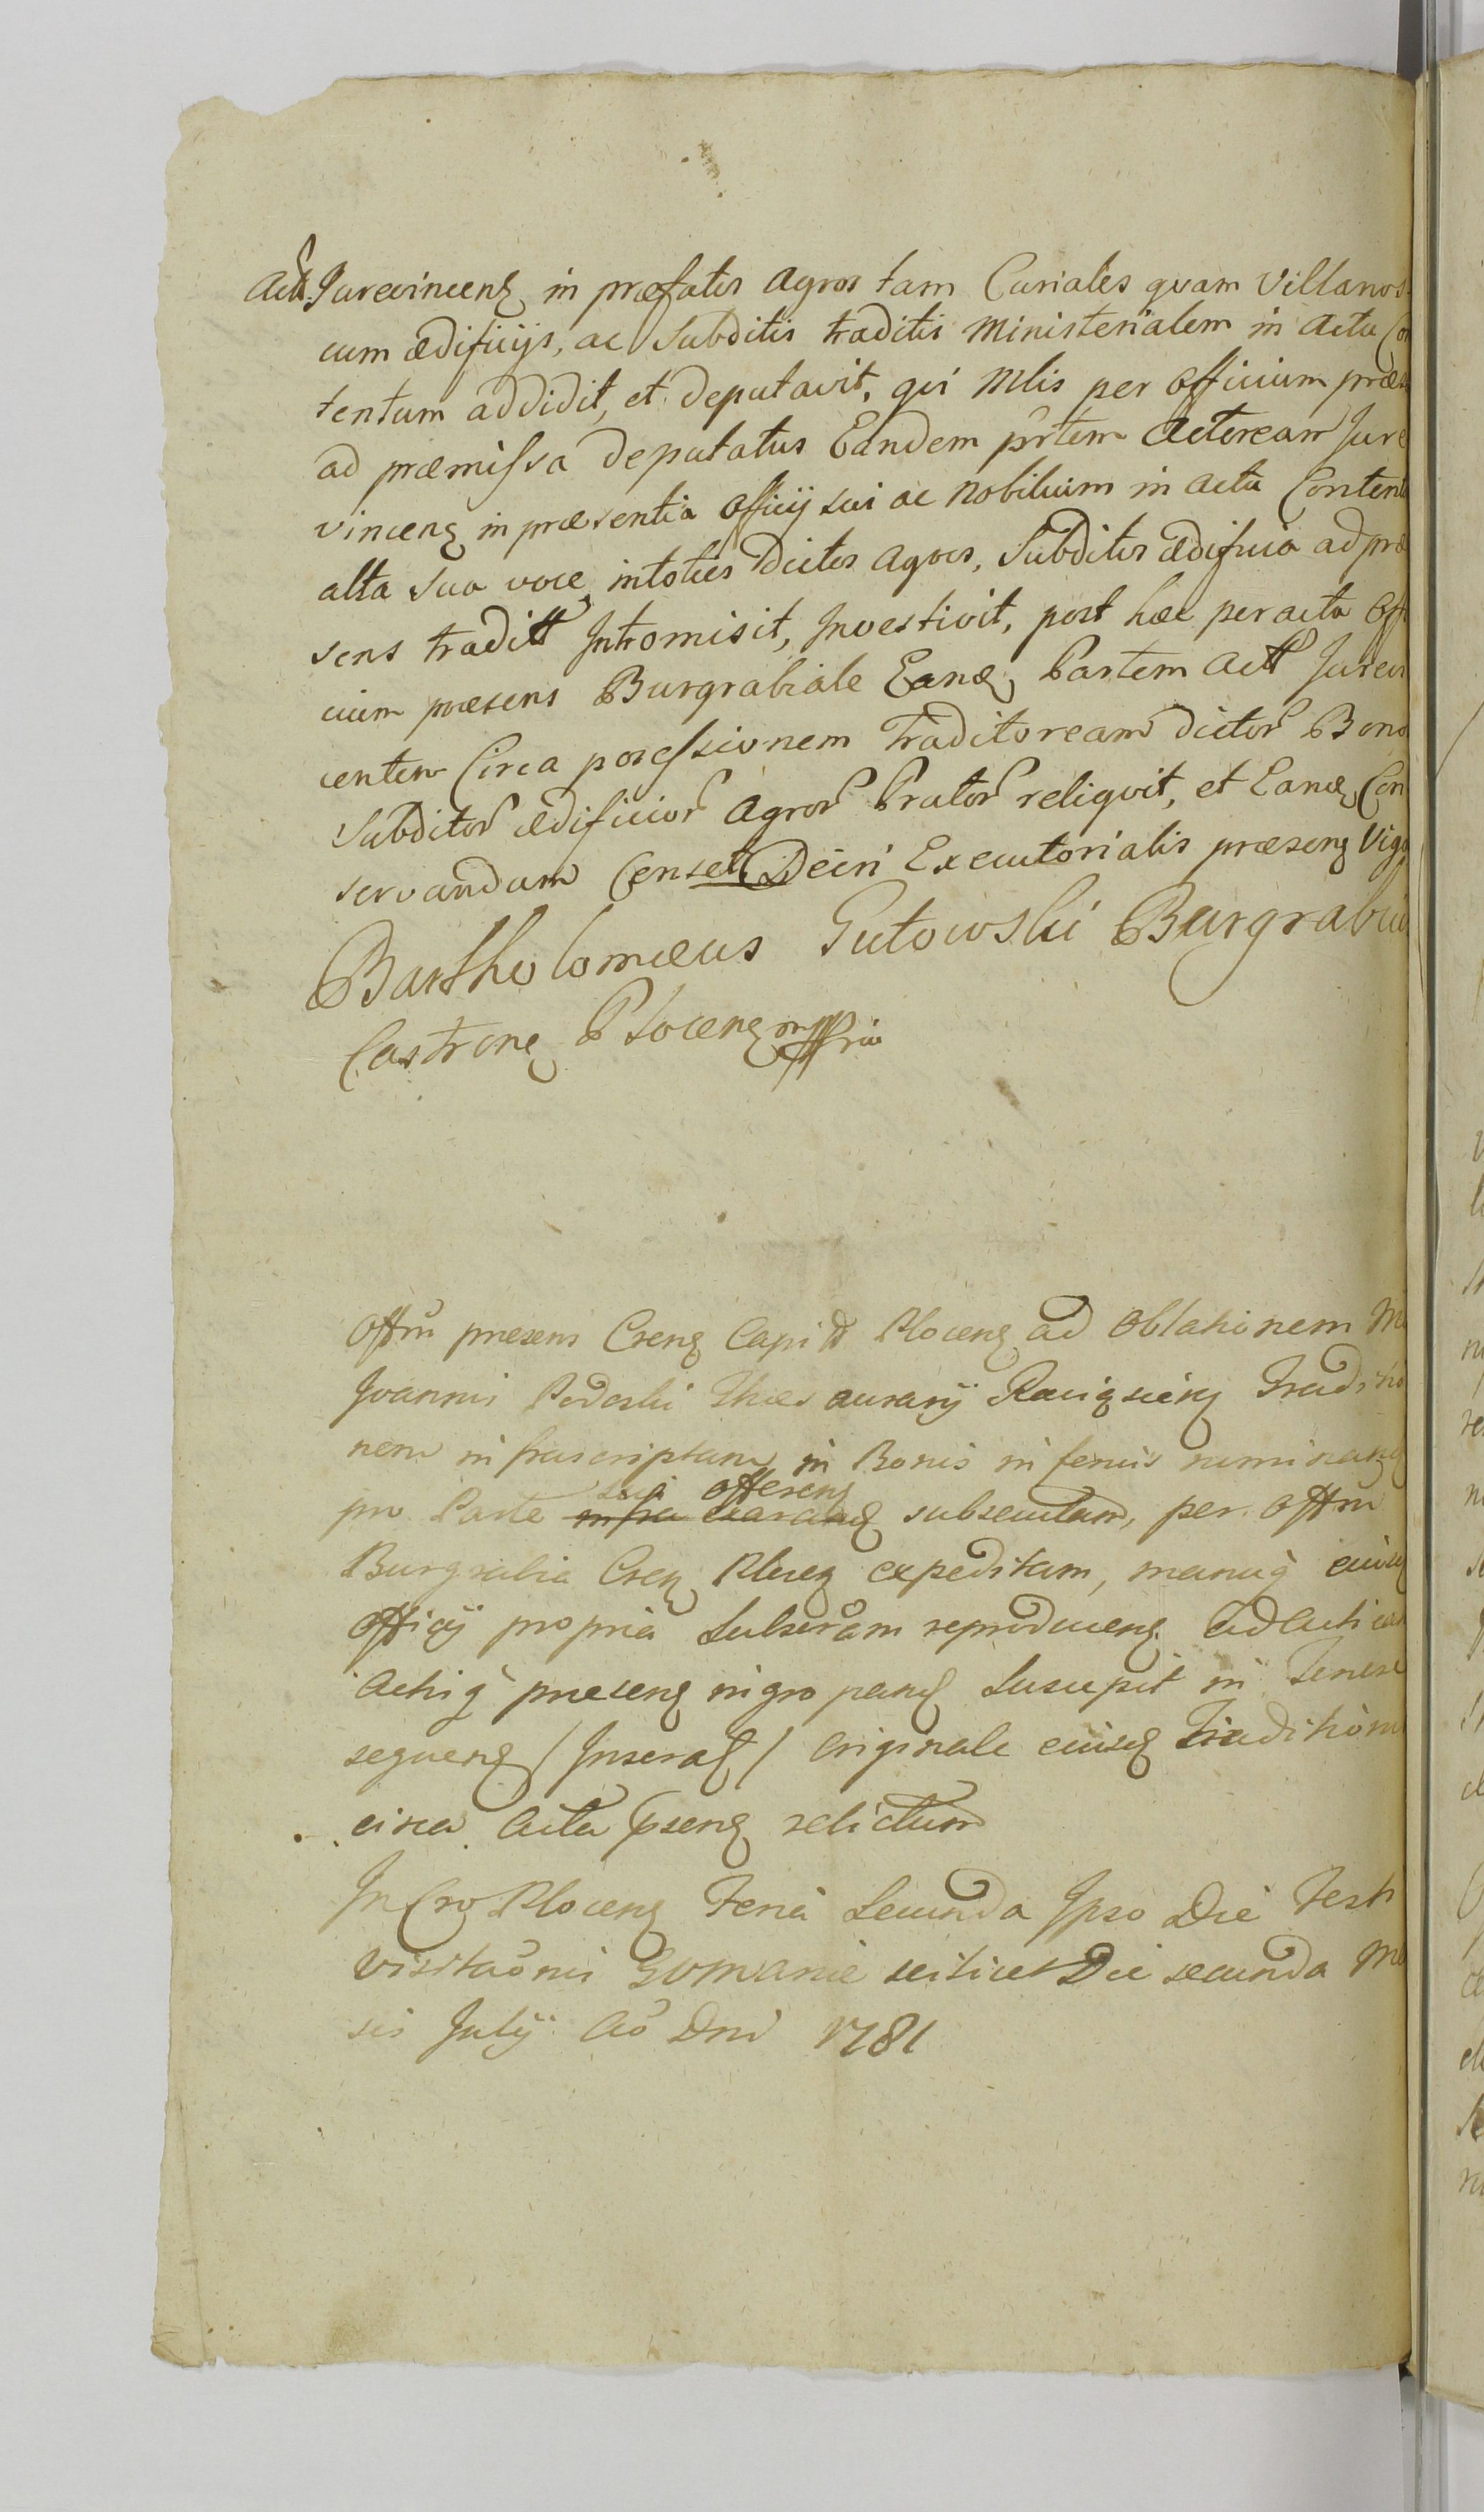 Actt Jurevincens in præfatos Agros tam Curiales quam Villanos
cum ædificijs, ac Subditis traditis Ministerialem in Actu Con
tentum addidit, et deputavit, qui Mlis per Officium præs
ad præmissa deputatus Eandem prtem Actoream Jure
vincens in præsentia Officij sui ac Nobilium in Actu Content
alta sua voce intoties dictos Agros, Subditos ædificia ad præ
sens traditt Intromisit, Investivit, post hæc peracta Offi
cium præsens Burgrabiale Eand Partem Actt Jurevin
centem Circa possessionem Traditoream dictor Bono
Subditor ædificior Agror Prator reliquit, et Eand Con
servandam Censet Decri Executorialis præsens Vigo
Bartholomæus Gutowski Burgrabiu
Castrens Plocens mppria
Offm præsens Crens Capitt Plocens ad Oblationem M
Joannis Podoski Thesaurarij Raciąscieñ Traditio
nem infrascriptam in Bonis inferius nominand
pro Parte sua offerens
infra subsecutam, per Offm
Burgrabia Cren Plocen expeditam, manuq eiusq
Officij propria Subscram reproducens Ad Acticand
Actisq præsens ingropand Suscepit in Tenore
sequens / Inserat / Originale eiusq Traditionis
circa Acta psens relictum
In Cro Plocens Feria Secunda Ipso Die Festi
Visitaõnis GVMariæ scilicet Die secunda Me
sis Julij Aõ Dni 1781